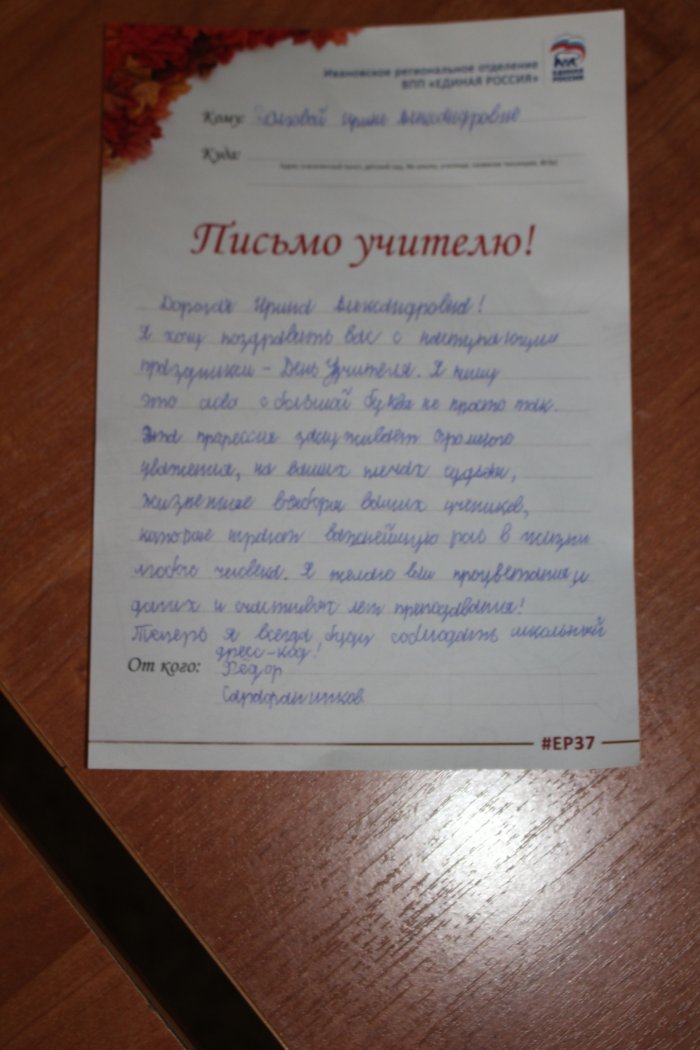 Ивановское региональное отделение
ВПП «ЕДИНАЯ РОССИЯ»
ЕДИНАЯ
РОССИЯ
Кому: Ирине Александровне
Куда:
Письмо учителю!
Дорогая Ирина Александровна!
Я хочу поздравить вас с наступающим
праздником - День Учителя. Я пишу
это слово с большой буквы не просто так.
Эта профессия заслуживает огромного
уважения, на ваших плечах судьбы,
жизненные выборы ваших учеников,
которые играют важнейшую роль в жизни
любого человека. Я желаю вам процветания и
долгих и счастливых лет преподавания!
Теперь я всегда буду соблюдать школьный
дресс-код!
От кого: Фёдор
#ЕР37